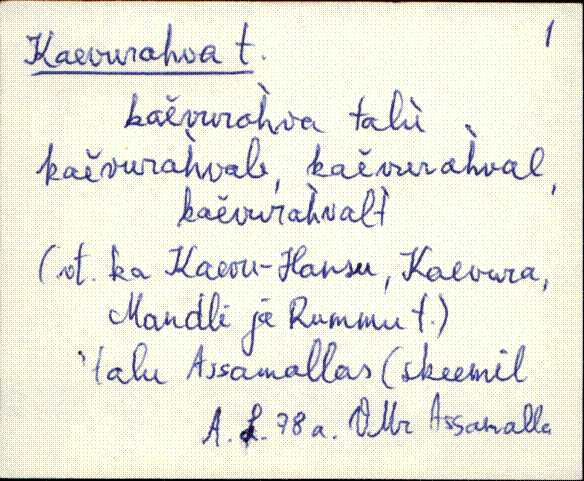 Kaevurahva t. 1
kaĕvuràhva talù
kaĕvuràhvale, kaĕvuràhval,
kaĕvuràhvalt
(vt. ka Kaevu-Hansu, Kaevura,
Mandli ja Rummu t.)
'talu Assamallas (skeemil
A. L. 78 a. VMr Assamalla